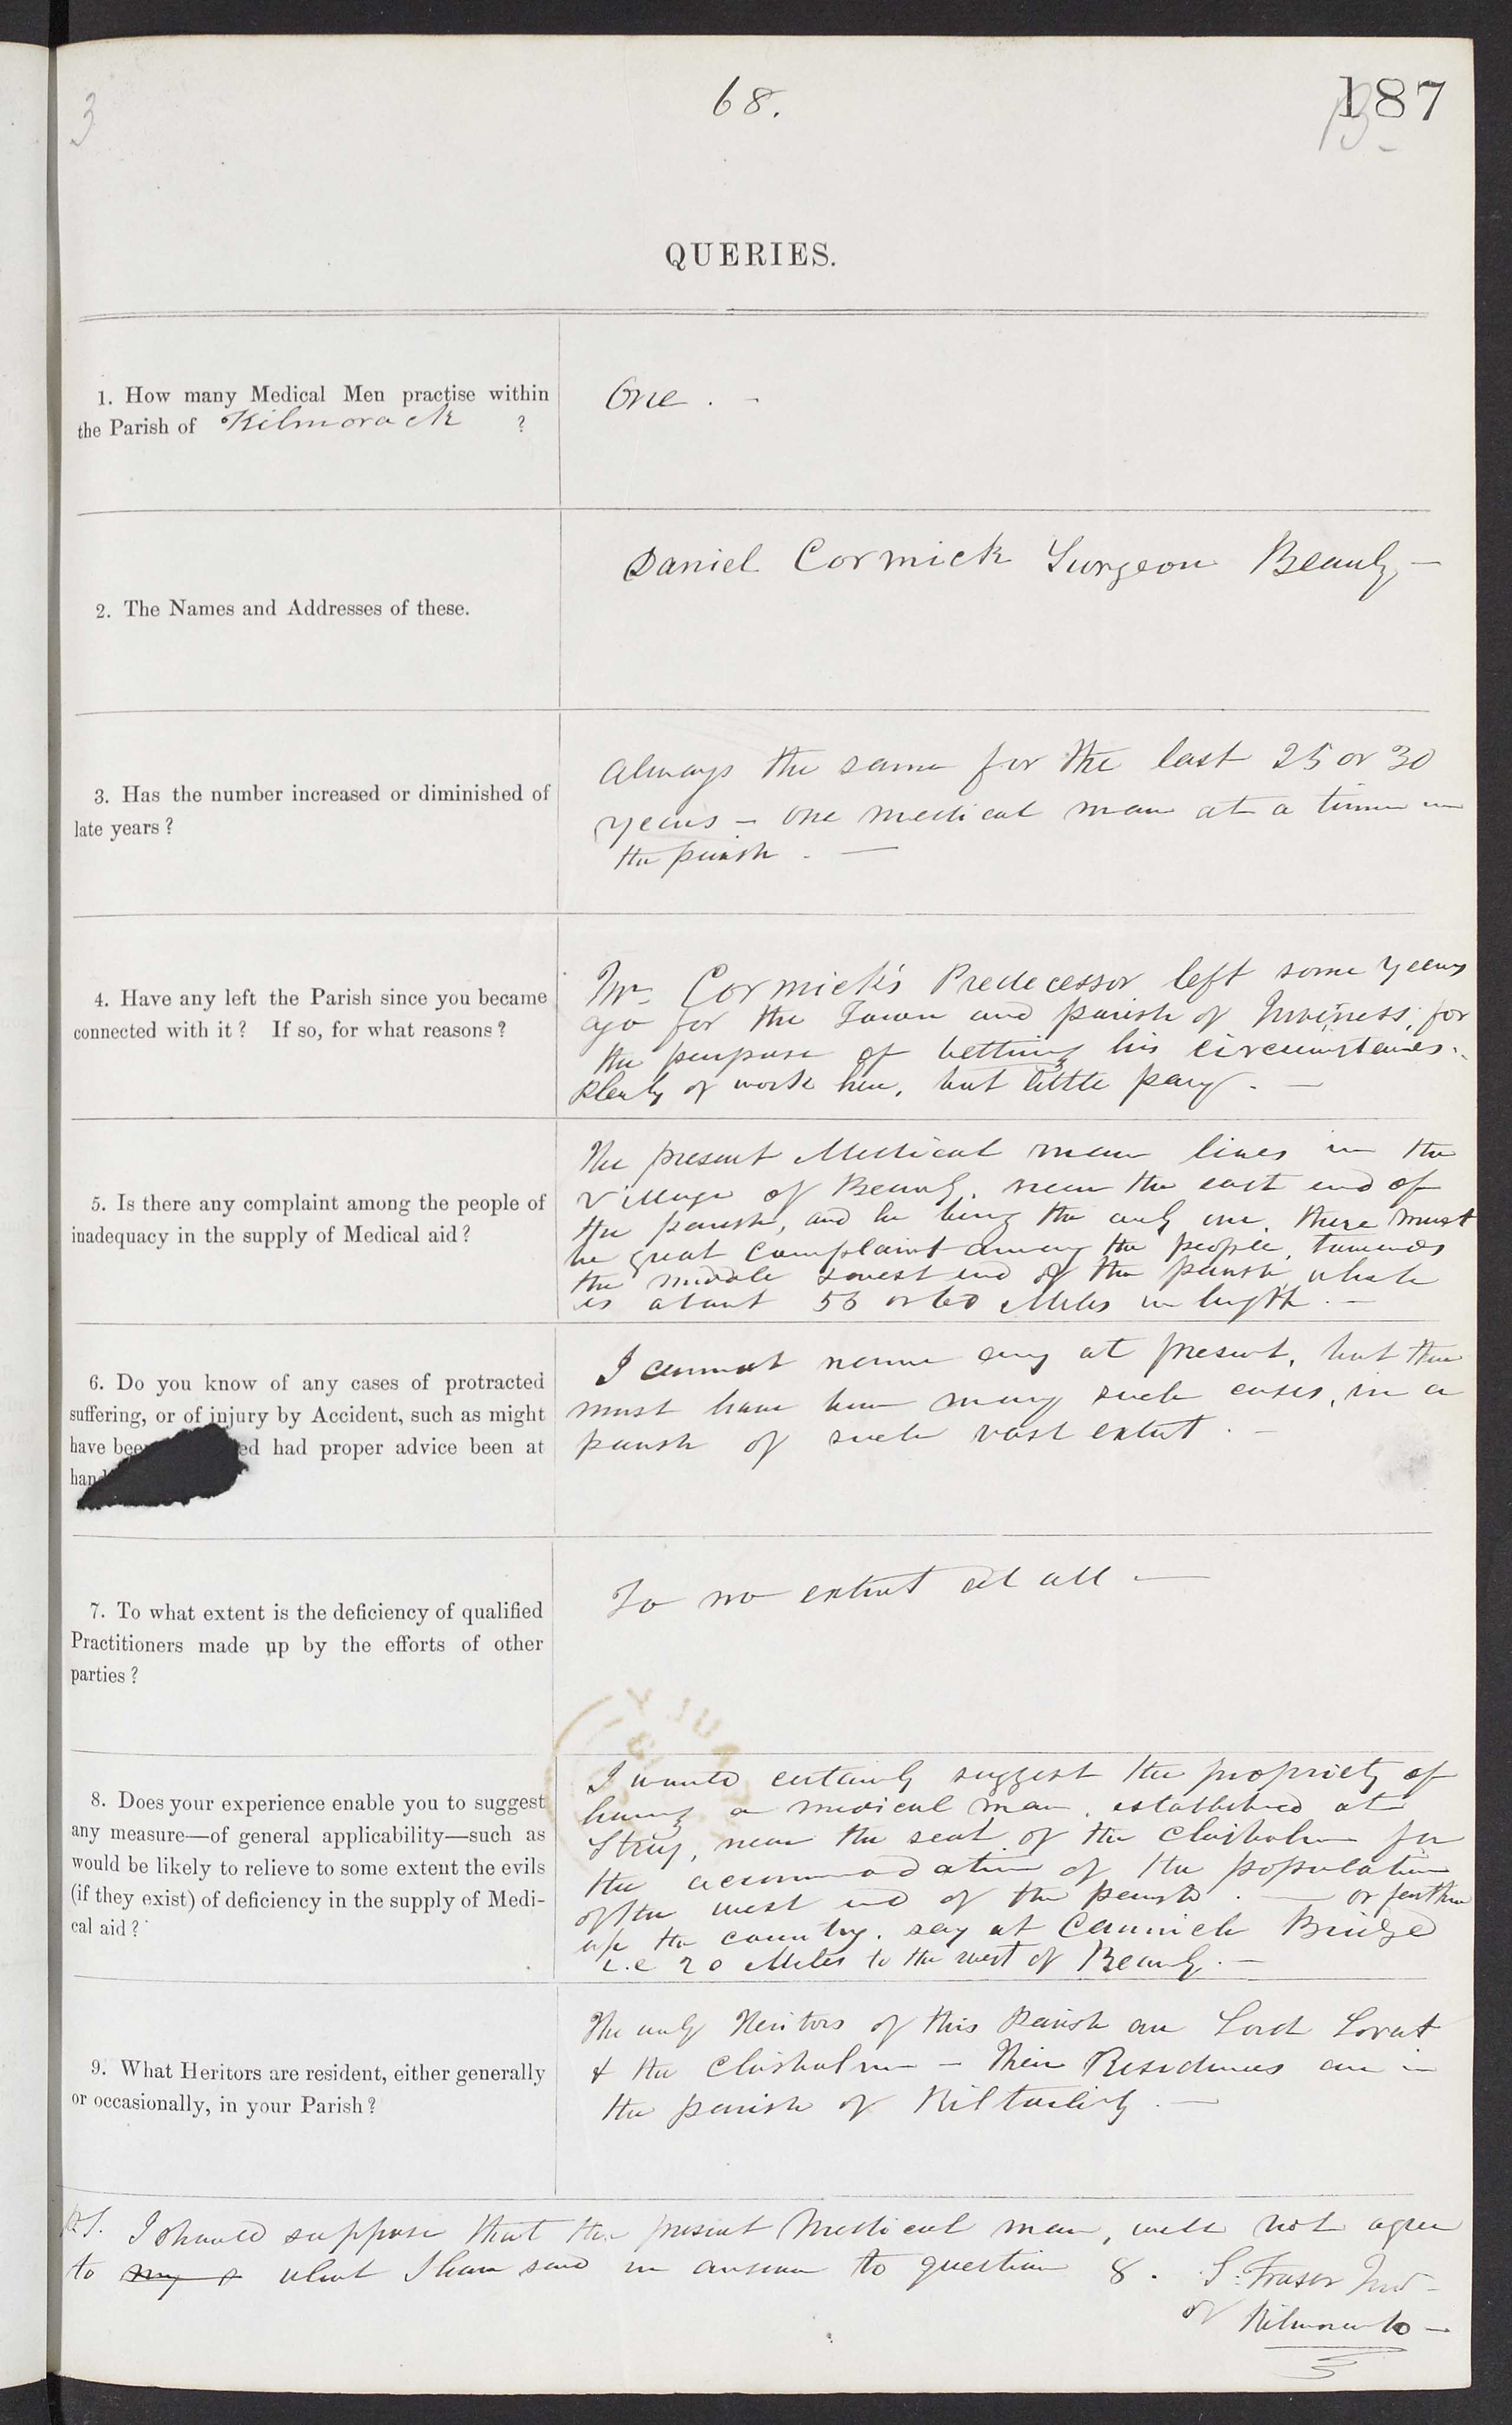 3
68.
187
13-
QUERIES.
1. How many Medical Men practise within
the Parish of Kilmorack ?
One . -
2. The Names and Addresses of these.
Daniel Cormick Surgeon Beauly -
3. Has the number increased or diminished of
late years ?
Always the same for the last 25 or 30
years - one medical man at a time in
the parish . -
4. Have any left the Parish since you became
connected with it ? If so, for what reasons ?
Mr. Cormick's Predecessor left some years
ago for the Town and parish of Inverness, for
the purpose of bettering his circumstances.
Plenty of work here, but little pay . -
5. Is there any complaint among the people of
inadequacy in the supply of Medical aid ?
The present Medical man lives in the
village of Beauly, near the east end of
the parish, and he being the only one, there must
be great complaint among the people, towards
the middle & west end of the parish, which
is about or 60 Miles in length . -
6. Do you know of any cases of protracted
suffering, or of injury by Accident, such as might
have bee ed had proper advice been at
hand
I cannot name any at present, but there
must have been many such cases, in a
parish of such vast extent . -
7. To what extent is the deficiency of qualified
Practitioners made up by the efforts of other
parties ?
To no extent at all -
8. Does your experience enable you to suggest
any measure—of general applicability—such as
would be likely to relieve to some extent the evils
(if they exist) of deficiency in the supply of Medi-
cal aid ?
I would certainly suggest the propriety of
having a medical man, established at
Struy, near the seat of the Chisholm for
the accommodation of the population
of the west end of the parish . - or farther
up the country, say at Cannich Bridge
i.e 20 Miles to the west of Beauly . -
9. What Heritors are resident, either generally
or occasionally, in your Parish ?
The only Heritors of this Parish are Lord Lovat
& the Chisholm - Their Residences are in
the parish of Kiltarlity . -
P.S. I should suppose that the present Medical man, will not agree
to my what I have said in answer to question 8. S. Fraser Inr -
of Kilmorack -